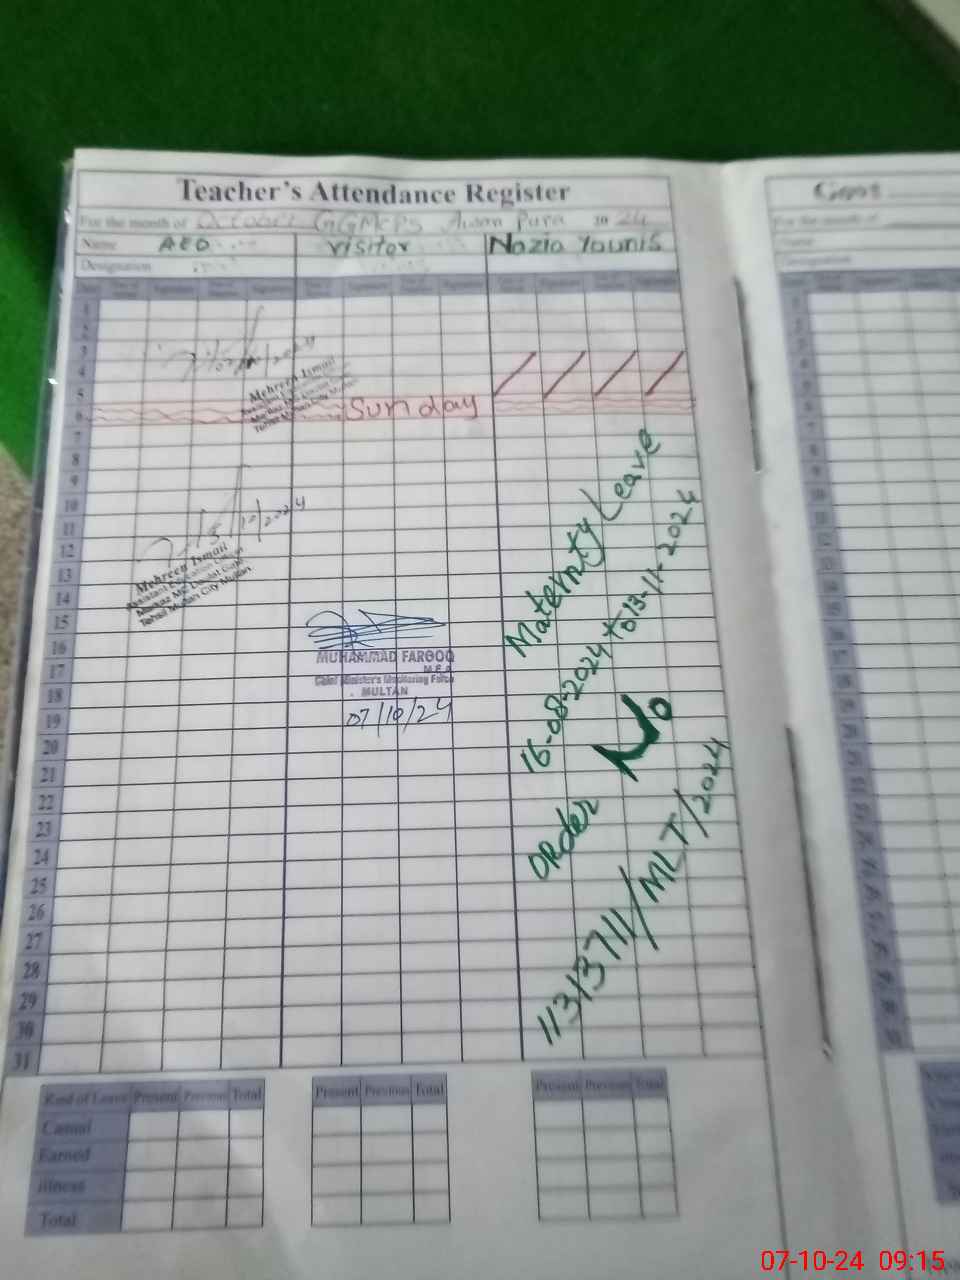 Teacher's Attendance Register
For the month of October GGMCPS Awan Pura 2024
Name AEO Visitor Nazia Younis
Designation
1
2
3
4
5
6 Sunday
7
8
9
10
11
12
13
14
15
16
17
18
19
20
21
22
23
24
25
26
27
28
29
30
31
10/2024
Mehreen Ismail
Tehsil Multan City Multan
10/2024
Mehreen Ismail
Assistant Education Officer
Markaz MC Daulat Gate
Tehsil Multan City Multan
MUHAMMAD FAROOQ
M.E.A
Chief Minister's Monitoring Force
MULTAN
07/10/24
Maternity Leave
16-08-2024 to 13-11-2024
Order No
11313711/MLT/2024
Kind of Leave Present Previous Total
Casual
Earned
Illness
Total
Present Previous Total
Present Previous Total
Govt
For the month of
Name
07-10-24 09:15